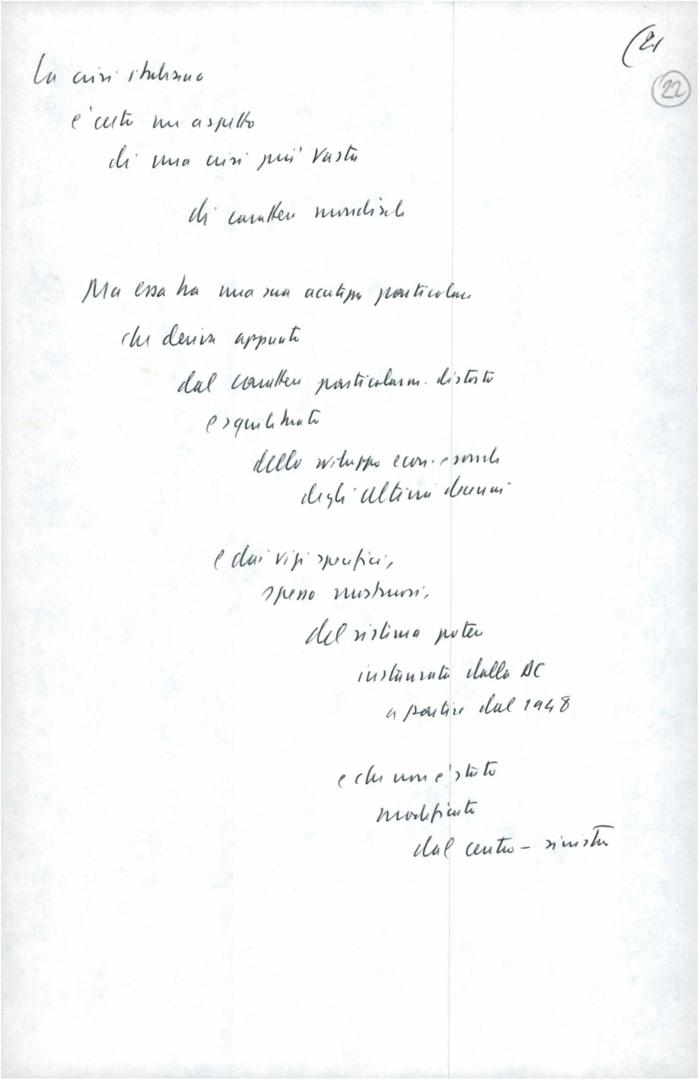 (21
22
La crisi italiana
e' certo un aspetto
di una crisi piu' vasta
di carattere mondiale
Ma essa ha una sua acutezza particolare
che deriva appunto
dal carattere particolarm. distorto
e squilibrato
dello sviluppo econ. e sociale
degli ultimi decenni
e dai vizi specifici,
spesso mostruosi,
del sistema potere
instaurato dalla DC
a partire dal 1948
e che non e' stato
modificato
dal centro-sinistra